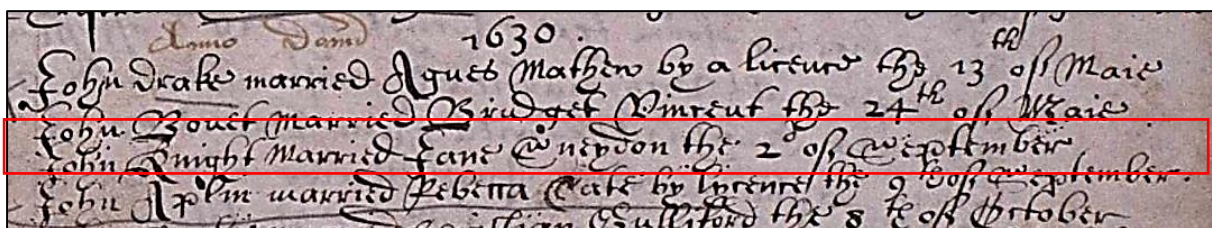 Anno Domi 1630.
John Drake married Agnes Mathew by a licence the 13th of Maie
John Bovet Married Bridget Vincent the 24th of Maie
John Knight Married Jane Sneydon the 2º of September
John Aplin married Rebecca Cate by lycence the 9th of September.
Gulliford the 8th of October